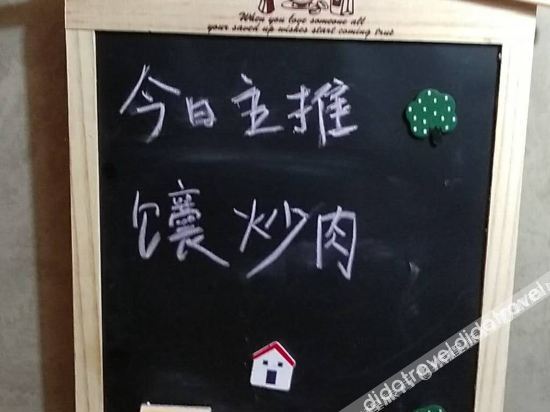 When you love someone all
your saved up wishes start coming true
今日主推
馕炒肉
didatravel didatravel